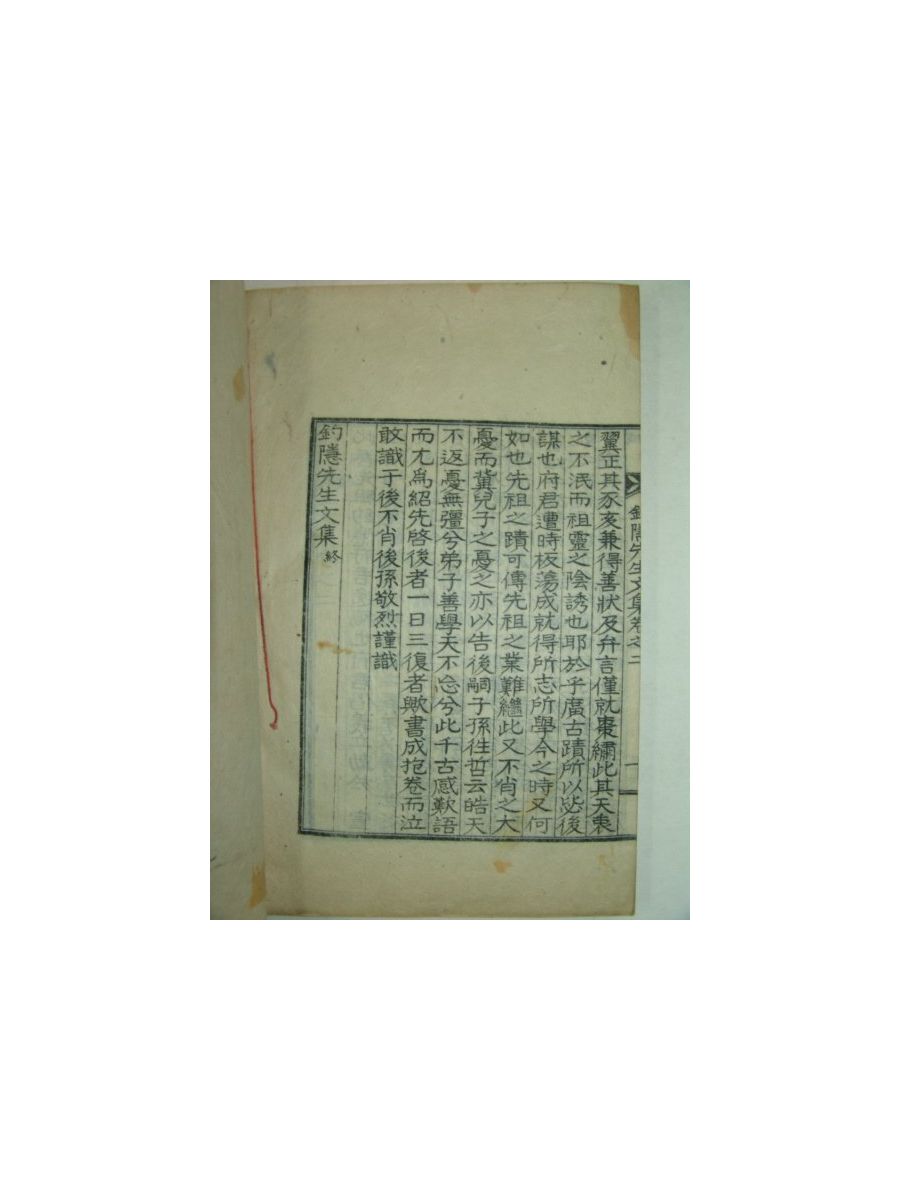 釣隱先生文集卷之二
翼正其豕亥兼得善狀及弁言僅就棗繡此其天衷
之不泯而祖靈之陰誘也耶於乎廣古蹟所以毖後
謀也府君遭時板蕩成就得所志所學今之時又何
如也先祖之蹟可傳先祖之業難繼此又不肖之大
憂而冀兒子之憂之亦以告後嗣子孫徃哲云皓天
不返憂無彊兮弟子善學天不忘兮此千古感歎語
而尤爲紹先啓後者一日三復者歟書成抱卷而泣
敢識于後不肖後孫敬烈謹識
釣隱先生文集終